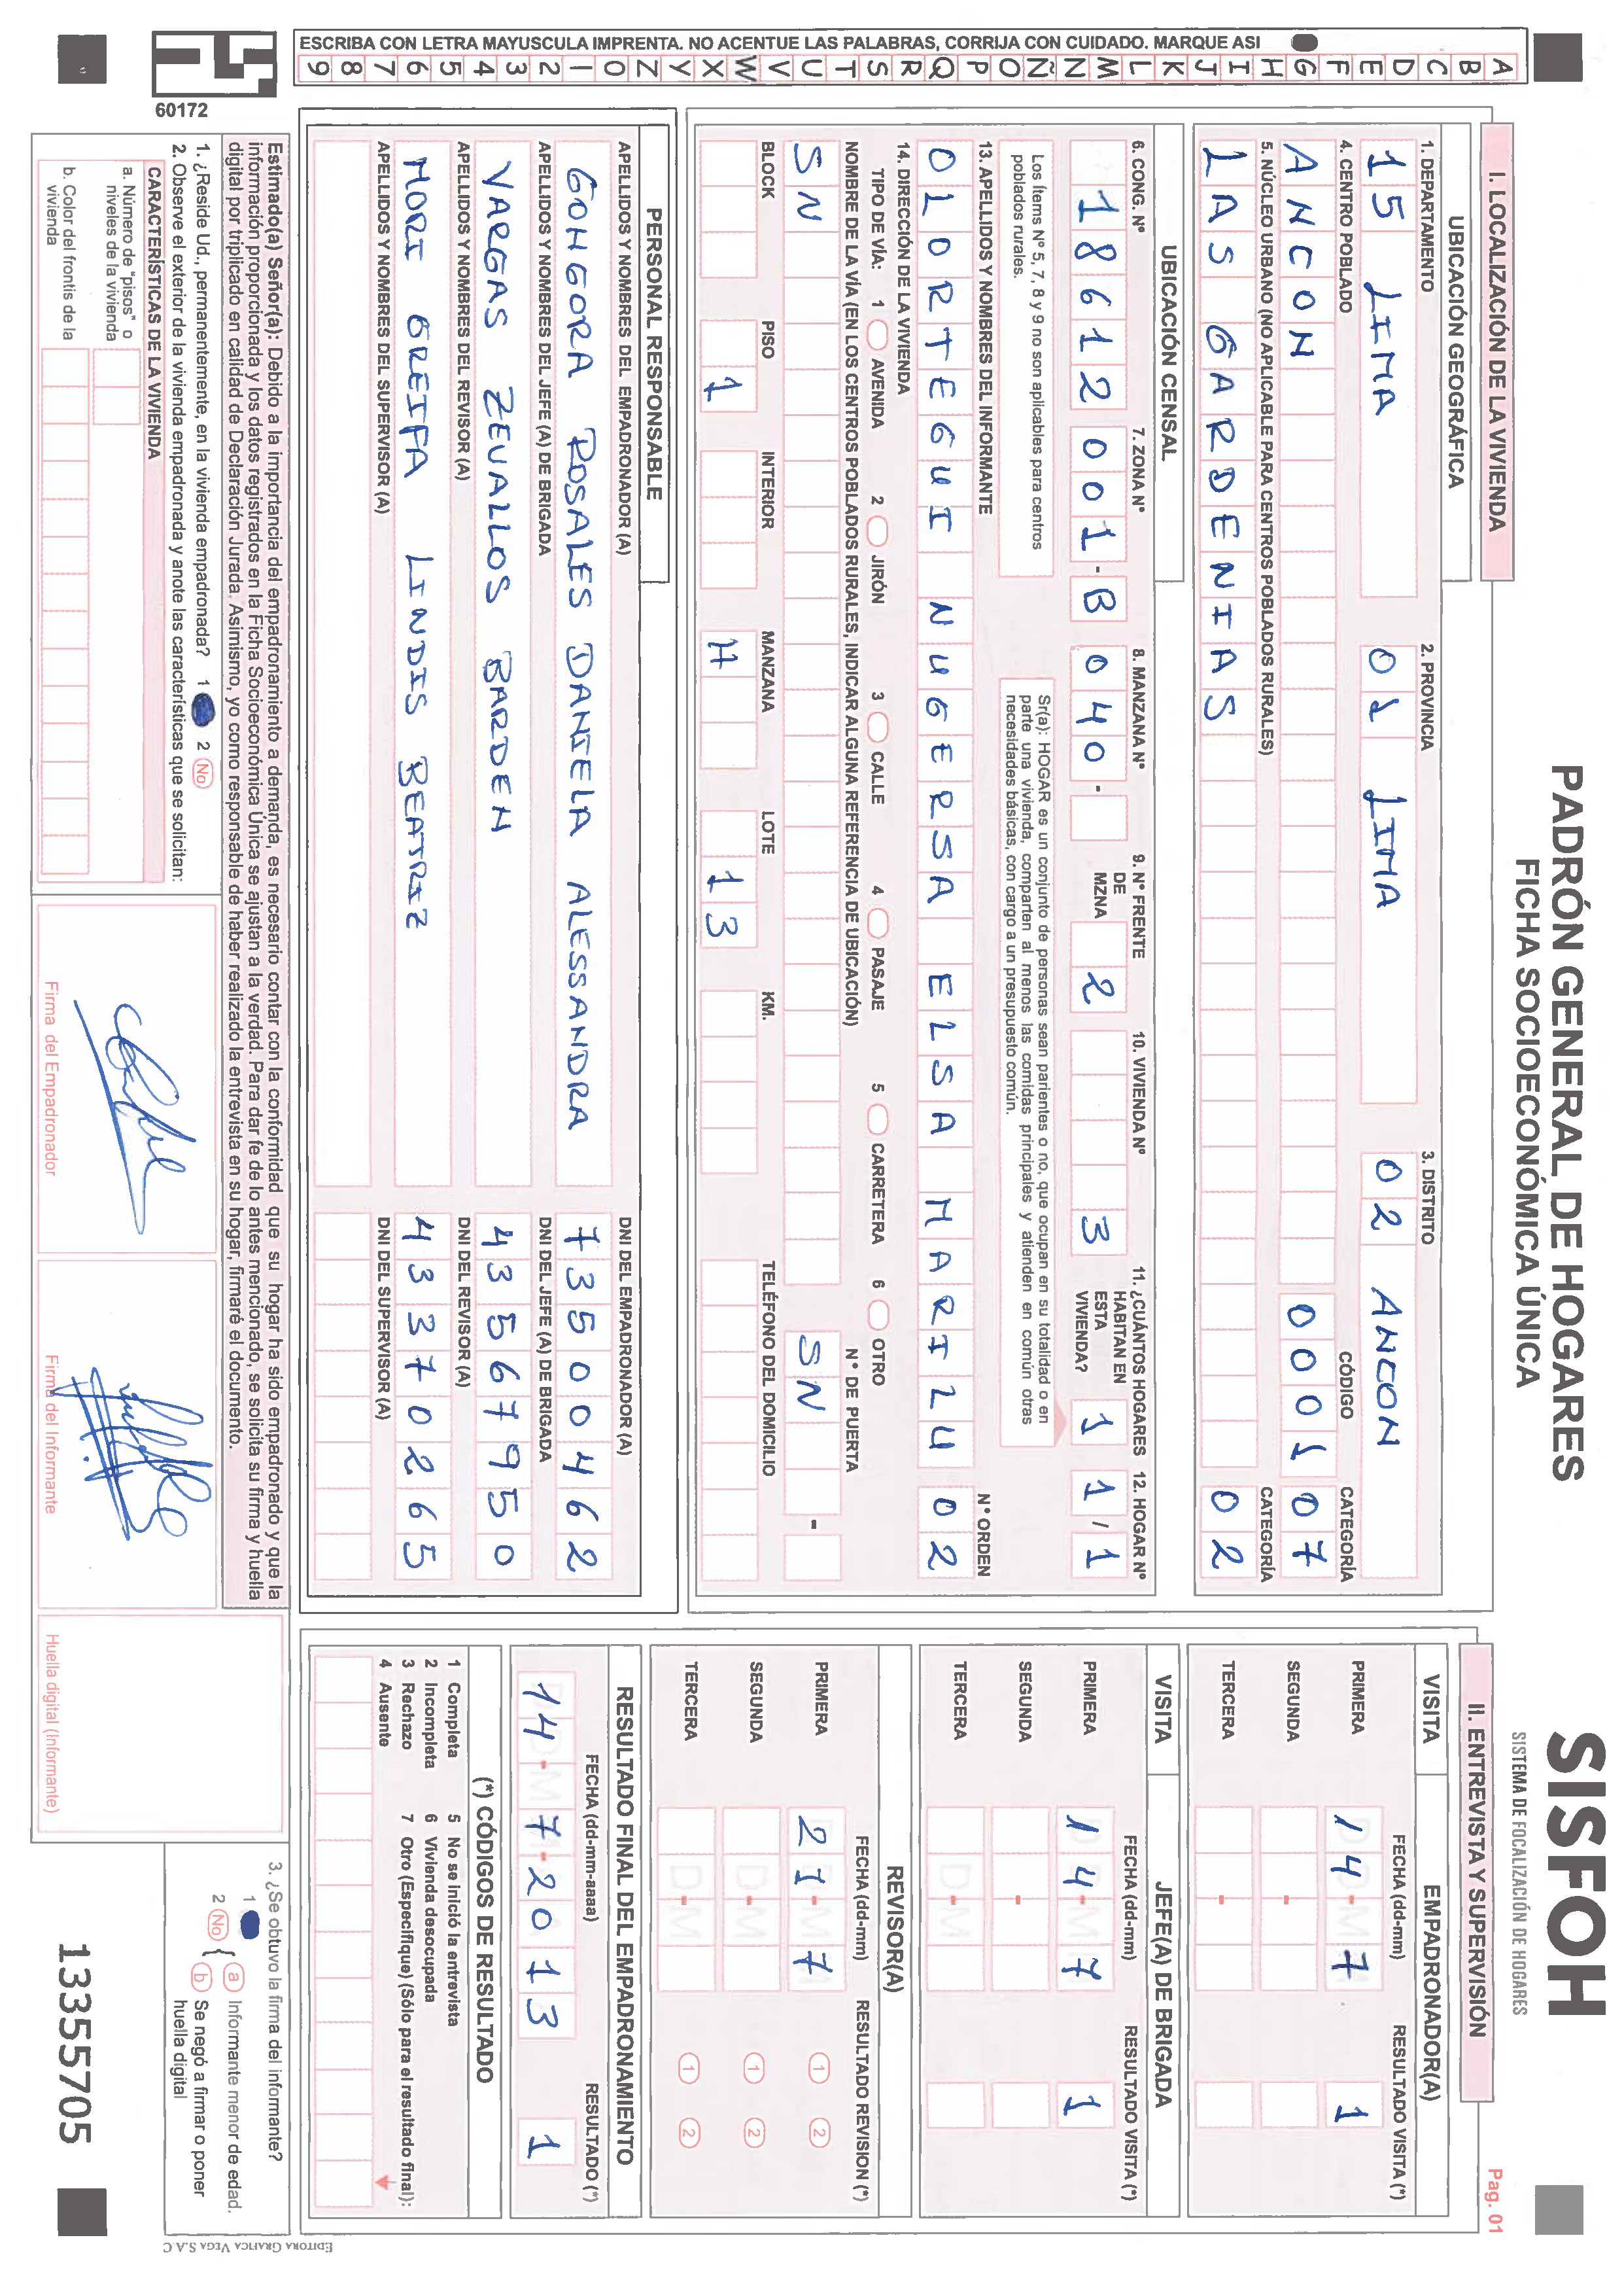 PADRÓN GENERAL DE HOGARES
FICHA SOCIOECONÓMICA ÚNICA
SISFOH
SISTEMA DE FOCALIZACIÓN DE HOGARES
Pag. 01
ESCRIBA CON LETRA MAYUSCULA IMPRENTA. NO ACENTUE LAS PALABRAS, CORRIJA CON CUIDADO. MARQUE ASI
A B C D E F G H I J K L M N Ñ O P Q R S T U V W X Y Z 0 1 2 3 4 5 6 7 8 9
60172
I. LOCALIZACIÓN DE LA VIVIENDA
UBICACIÓN GEOGRÁFICA
1. DEPARTAMENTO 2. PROVINCIA 3. DISTRITO
15 LIMA 01 LIMA 02 ANCON
4. CENTRO POBLADO CÓDIGO CATEGORÍA
ANCON 0001 07
5. NÚCLEO URBANO (NO APLICABLE PARA CENTROS POBLADOS RURALES) CATEGORÍA
LAS GARDENIAS 02
UBICACIÓN CENSAL
6. CONG. Nº 7. ZONA Nº 8. MANZANA Nº 9. Nº FRENTE DE MZNA 10. VIVIENDA Nº 11. ¿CUÁNTOS HOGARES HABITAN EN ESTA VIVIENDA? 12. HOGAR Nº
18612 001-B 040- 2 3 1 1/1
Los ítems Nº 5, 7, 8 y 9 no son aplicables para centros poblados rurales.
Sr(a): HOGAR es un conjunto de personas sean parientes o no, que ocupan en su totalidad o en
parte una vivienda, comparten al menos las comidas principales y atienden en común otras
necesidades básicas, con cargo a un presupuesto común.
13. APELLIDOS Y NOMBRES DEL INFORMANTE Nº ORDEN
OLORTEGUI NUGERSA ELSA MARILU 02
14. DIRECCIÓN DE LA VIVIENDA
TIPO DE VÍA: 1 AVENIDA 2 JIRÓN 3 CALLE 4 PASAJE 5 CARRETERA 6 OTRO
NOMBRE DE LA VÍA (EN LOS CENTROS POBLADOS RURALES, INDICAR ALGUNA REFERENCIA DE UBICACIÓN) Nº DE PUERTA
SN SN -
BLOCK PISO INTERIOR MANZANA LOTE KM. TELÉFONO DEL DOMICILIO
1 H 13
PERSONAL RESPONSABLE
APELLIDOS Y NOMBRES DEL EMPADRONADOR (A) DNI DEL EMPADRONADOR (A)
GONGORA ROSALES DANIELA ALESSANDRA 73500462
APELLIDOS Y NOMBRES DEL JEFE (A) DE BRIGADA DNI DEL JEFE (A) DE BRIGADA
VARGAS ZEVALLOS BARDEN 43567950
APELLIDOS Y NOMBRES DEL REVISOR (A) DNI DEL REVISOR (A)
MORI GREIFA LINDIS BEATRIZ 43370265
APELLIDOS Y NOMBRES DEL SUPERVISOR (A) DNI DEL SUPERVISOR (A)
Estimado(a) Señor(a): Debido a la importancia del empadronamiento a demanda, es necesario contar con la conformidad que su hogar ha sido empadronado y que la
información proporcionada y los datos registrados en la Ficha Socioeconómica Única se ajustan a la verdad. Para dar fe de lo antes mencionado, se solicita su firma y huella
digital por triplicado en calidad de Declaración Jurada. Asimismo, yo como responsable de haber realizado la entrevista en su hogar, firmaré el documento.
1. ¿Reside Ud., permanentemente, en la vivienda empadronada? 1 2 No
2. Observe el exterior de la vivienda empadronada y anote las características que se solicitan:
CARACTERÍSTICAS DE LA VIVIENDA
a. Número de "pisos" o niveles de la vivienda
b. Color del frontis de la vivienda
Firma del Empadronador
Firma del Informante
Huella digital (Informante)
II. ENTREVISTA Y SUPERVISIÓN
VISITA EMPADRONADOR(A)
FECHA (dd-mm) RESULTADO VISITA (*)
PRIMERA 14-7 1
SEGUNDA -
TERCERA -
VISITA JEFE(A) DE BRIGADA
FECHA (dd-mm) RESULTADO VISITA (*)
PRIMERA 14-7 1
SEGUNDA -
TERCERA -
REVISOR(A)
FECHA (dd-mm) RESULTADO REVISION (*)
PRIMERA 21-7 1 2
SEGUNDA - 1 2
TERCERA - 1 2
RESULTADO FINAL DEL EMPADRONAMIENTO
FECHA (dd-mm-aaaa) RESULTADO (*)
14-7-2013 1
(*) CÓDIGOS DE RESULTADO
1 Completa 5 No se inició la entrevista
2 Incompleta 6 Vivienda desocupada
3 Rechazo 7 Otro (Especifique) (Sólo para el resultado final):
4 Ausente
3. ¿Se obtuvo la firma del informante?
1
2 No { a Informante menor de edad.
b Se negó a firmar o poner huella digital
13355705
EDITORA GRAFICA VEGA S.A.C